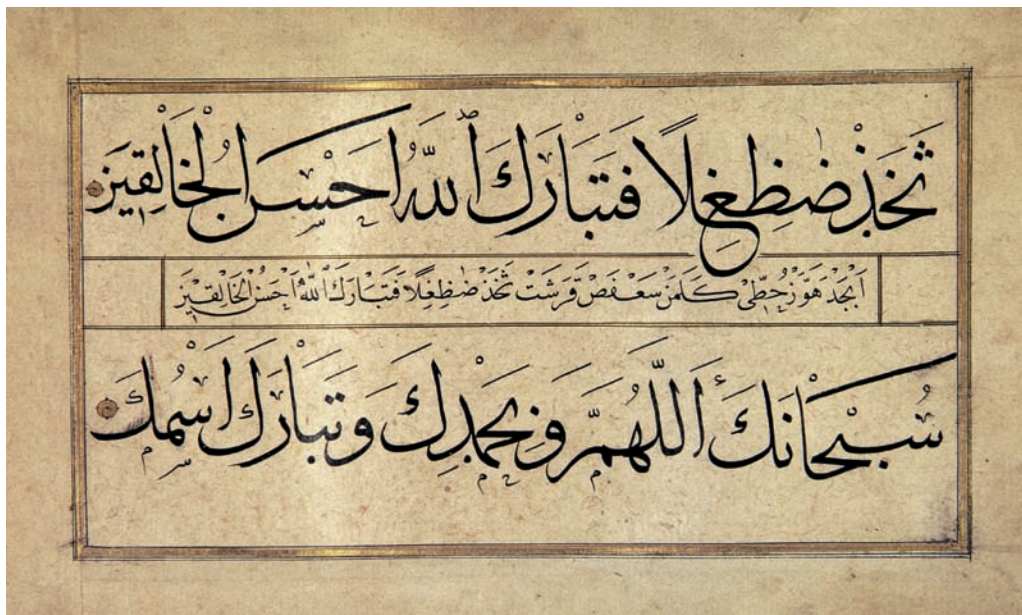 ثَخَذْ ضَظِغِلًا فَتَبَارَكَ ٱللّٰهُ اَحْسَنُ الْخَالِقِينَ
اَبْجَدْ هَوَّزْ حُطِّى كَلَمَنْ سَعْفَصْ قَرَشَتْ ثَخَذْ ضَظِغِلًا فَتَبَارَكَ ٱللّٰهُ اَحْسَنُ الْخَالِقِينَ
سُبْحَانَكَ اَللّٰهُمَّ وَبِحَمْدِكَ وَتَبَارَكَ اسْمُكَ